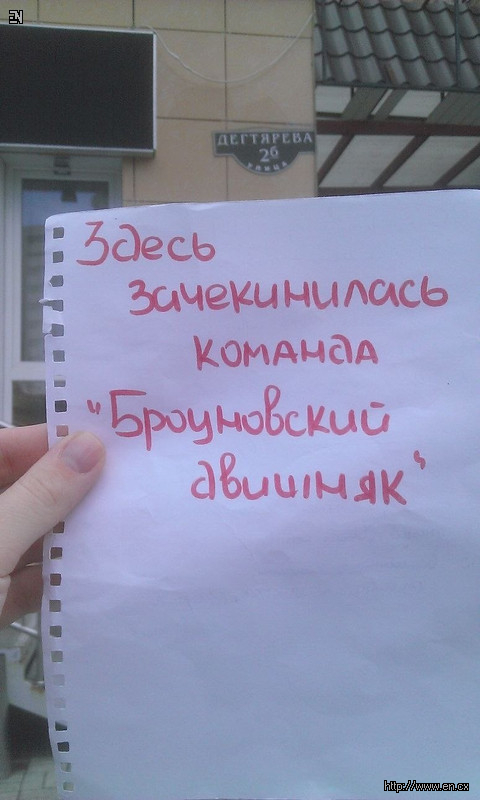 EN
ДЕГТЯРЕВА
26
УЛИЦА
Здесь
зачекинилась
команда
"Броуновский
движняк"
http://www.en.cx